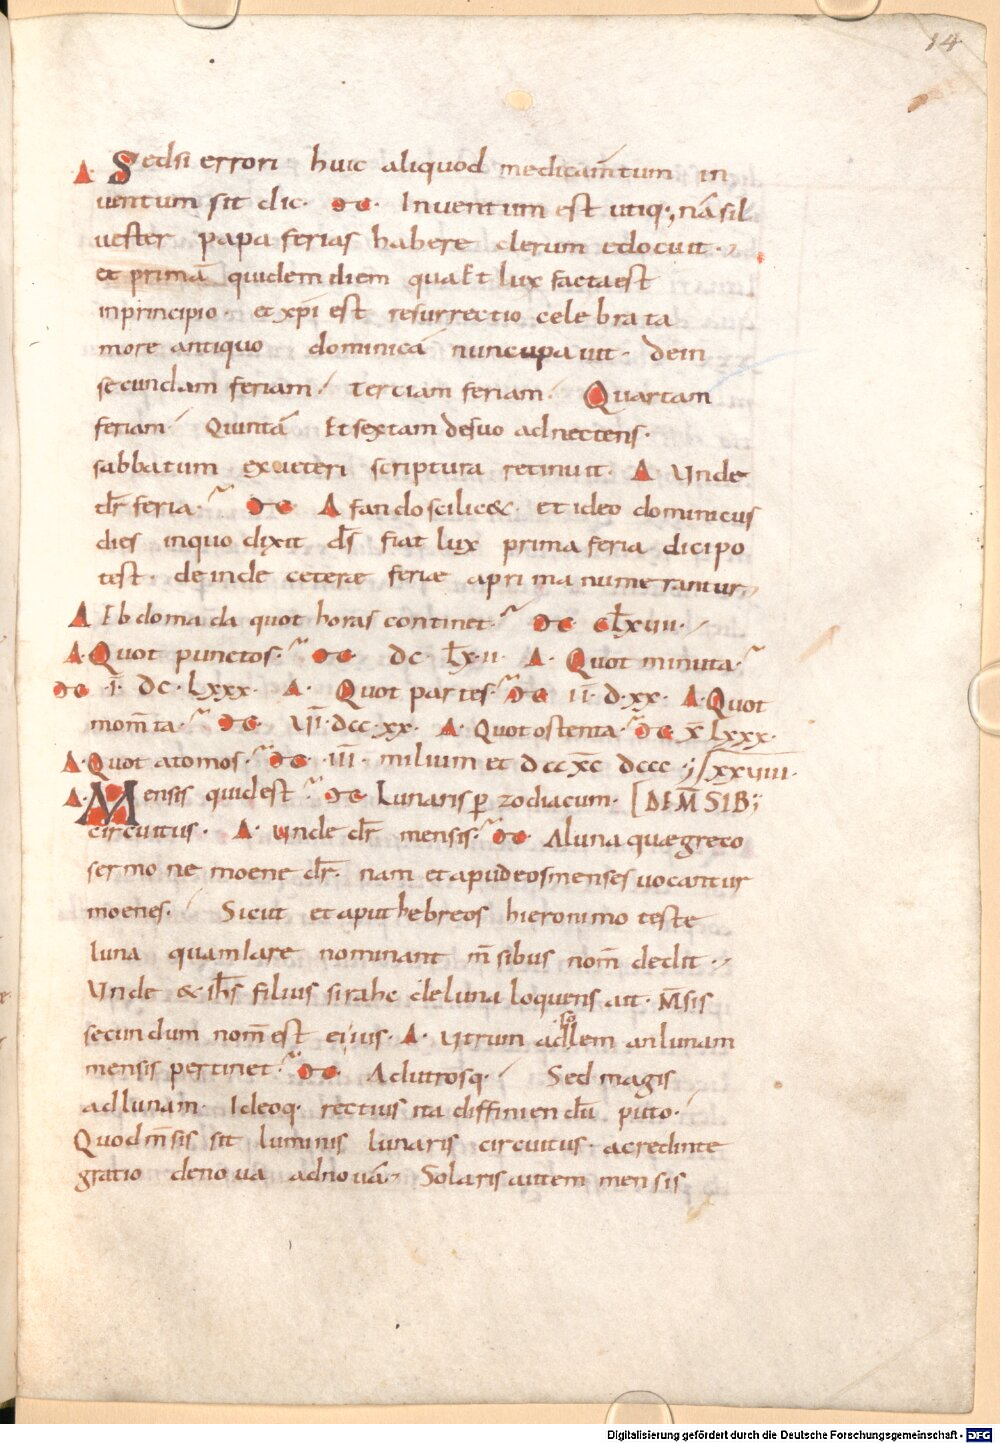 14
Δ Sedsi errori huic aliquod medicam̄tum in
uentum sit dic. ΘC. Inuentum est utiq;, nā sil
uester papa ferias habere clerum edocuit.,
et primā quidem diem qua et lux facta est
inprincipio. et xp̄i est resurrectio celebrata
more antiquo dominicā nuncupauit. dein
secundam feriam / terciam feriam / Quartam
feriam / Quintā Et sextam desuo adnectens.
sabbatum exueteri scriptura retinuit. Δ Unde
dr̄ feria. ΘC. A fando scilic&. et ideo dominicus
dies inquo dixit d̄s fiat lux prima feria dici po
test. deinde ceteræ feriæ aprima numerantur,
Δ Ebdomada quot horas continet. ΘC. clxuiii.
Δ. Quot punctos. ΘC. dc. lxx.ii. Δ. Quot minuta.
ΘC. ī. dc. lxxx. Δ. Quot partes. ΘC. īī. d.xx. Δ. Quot
mom̄ta. ΘC. ūī. dcc.xx. Δ. Quot ostenta. ΘC. x̄ lxxx.
Δ. Quot atomos. ΘC. īīī. milium et dccxc dccc
Δ. Mensis quid est. ΘC. Lunaris p̱ zodiacum. [DE M̄SIB;
circuitus. Δ. unde dr̄ mensis. ΘC. A luna quæ greco
sermo ne moene dr̄. nam et apudeos menses uocantur
moenes. / Sicut et aput hebreos hieronimo teste
luna quam iare nominant m̄sibus nom̄ dedit.,
Unde & ih̄s filius sirahc deluna loquens ait. M̄sis
secundum nom̄ est eiius. Δ. Utrum ad so lem an lunam
mensis pertinet. ΘC. Ad utrosq. / Sed magis
adlunam. Ideoq. rectius ita diffiniendū puto. /
Quod m̄sis sit luminis lunaris circuitus. ac redinte
gratio denoua adnouā, Solaris autem mensis
Digitalisierung gefördert durch die Deutsche Forschungsgemeinschaft - DFG